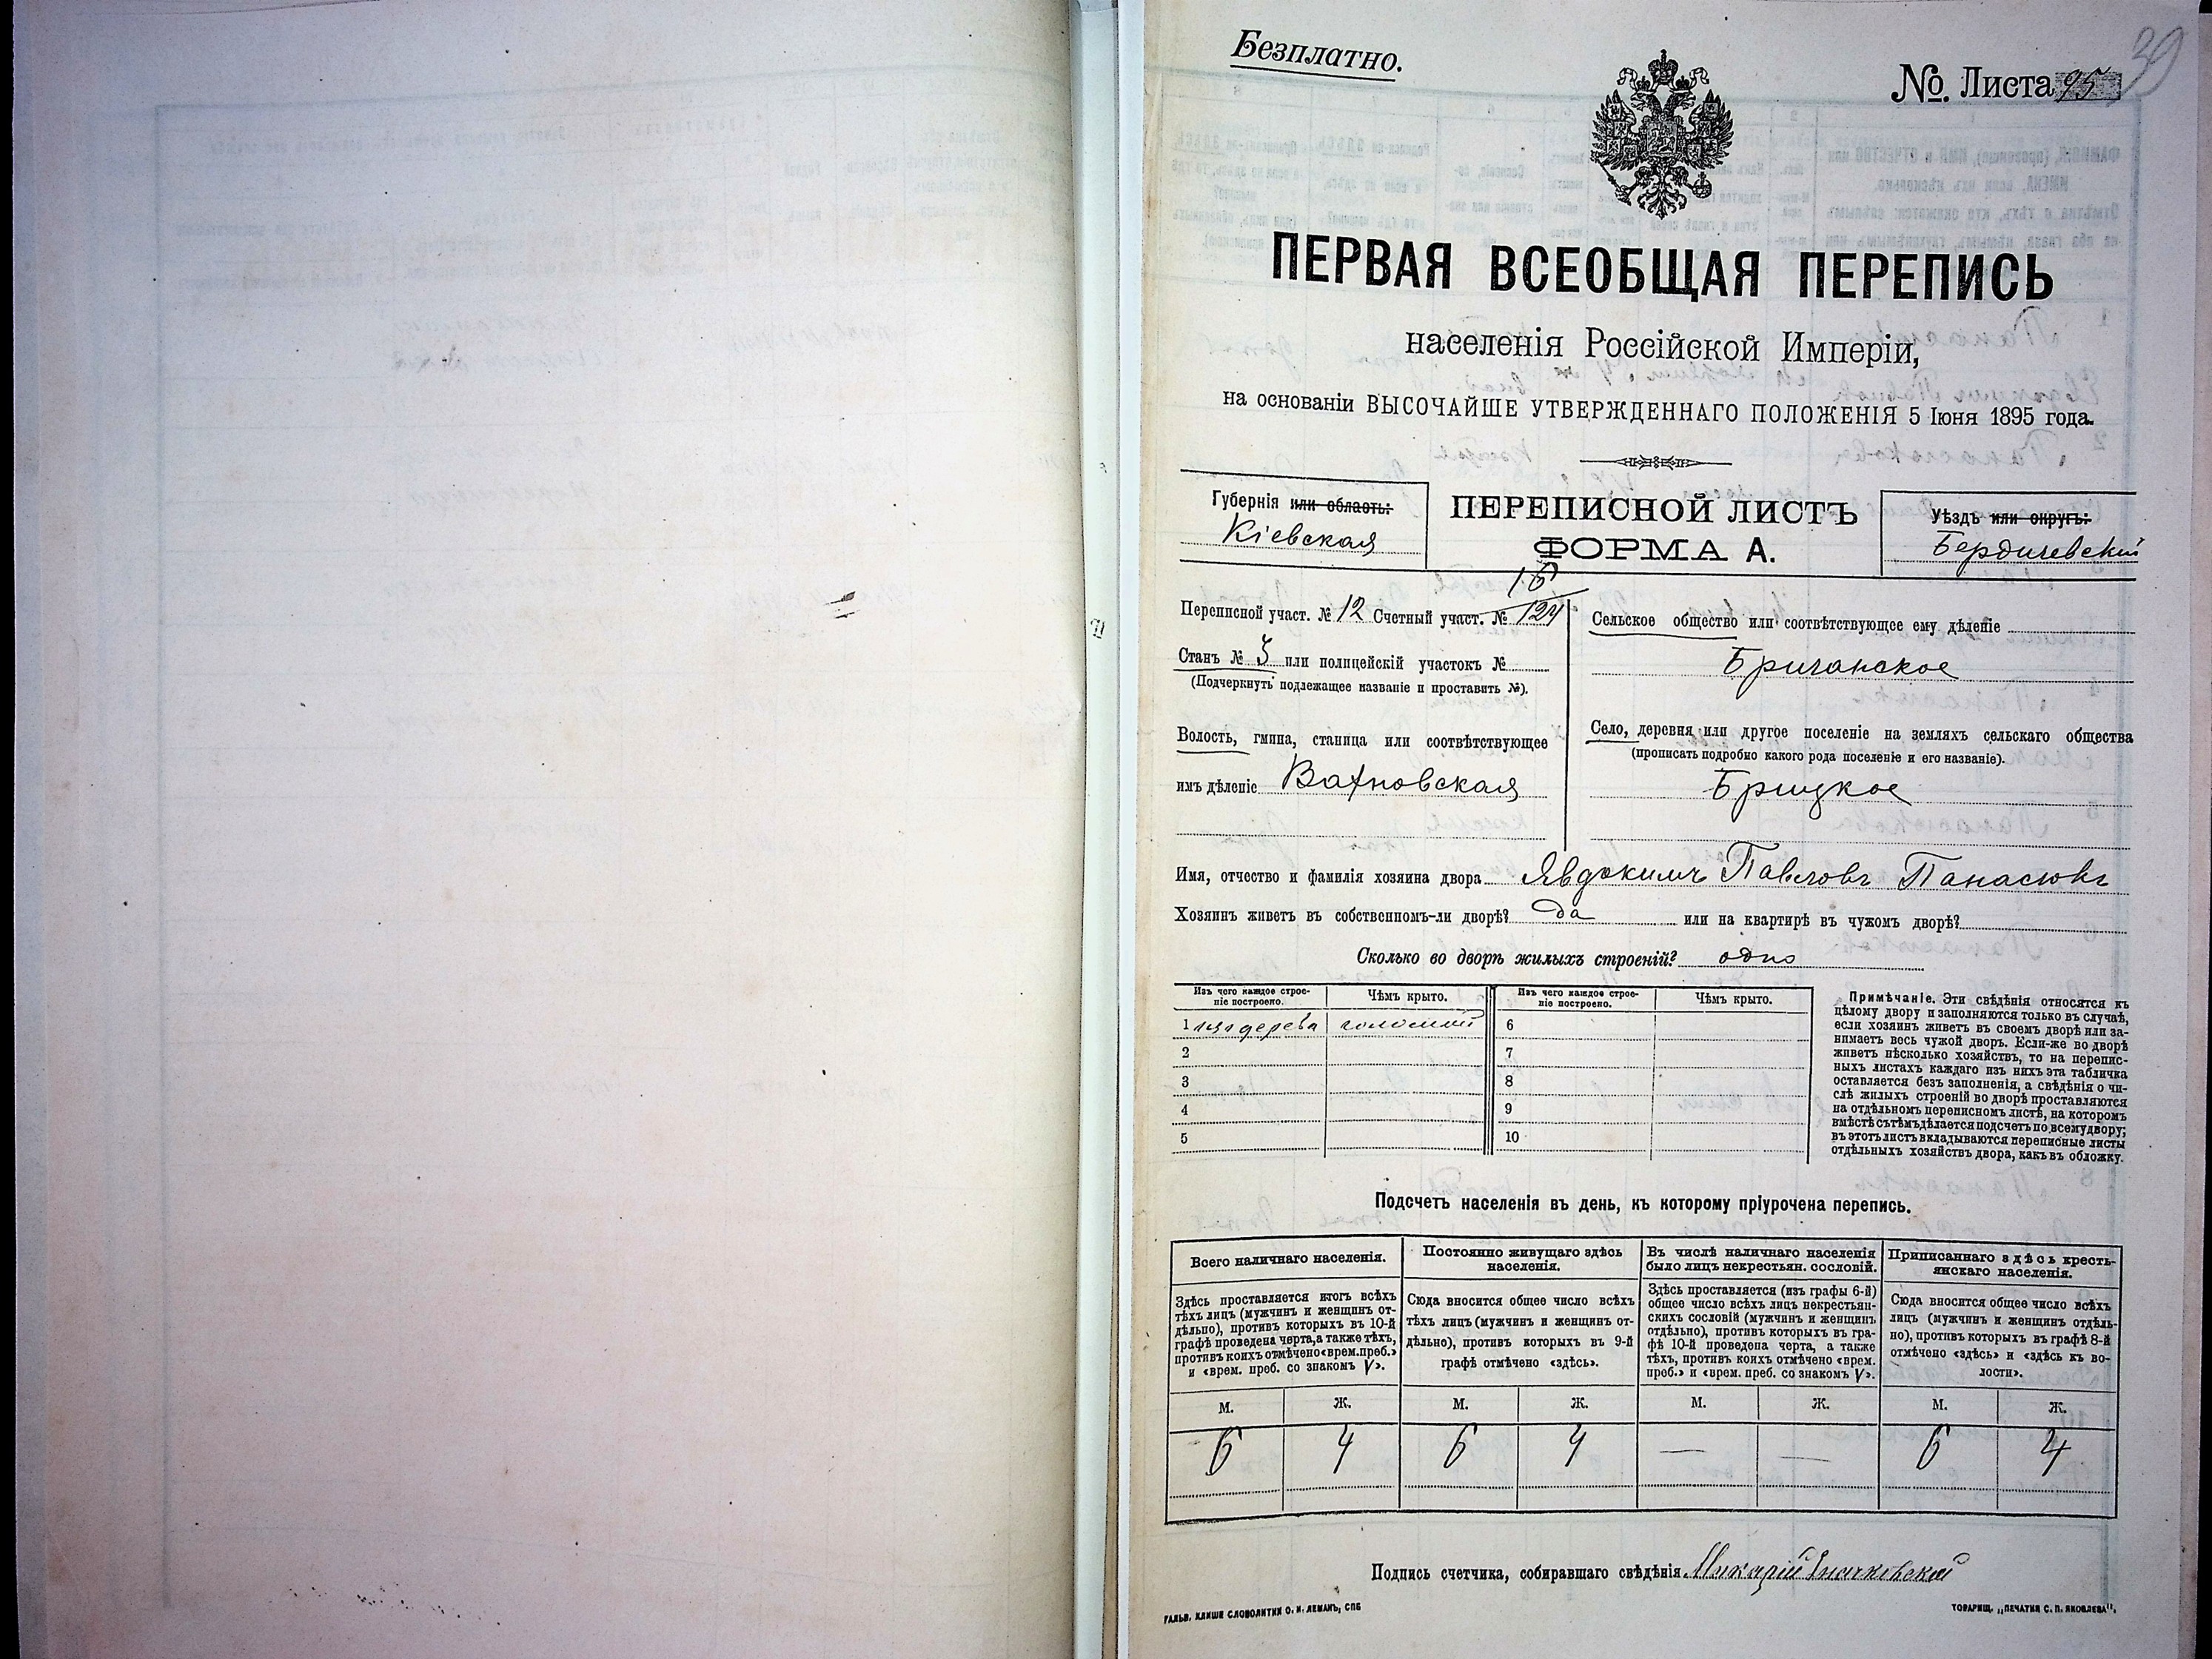 Безплатно.
№. Листа 95
39
ПЕРВАЯ ВСЕОБЩАЯ ПЕРЕПИСЬ
населенія Россійской Имперіи,
на основаніи ВЫСОЧАЙШЕ УТВЕРЖДЕННАГО ПОЛОЖЕНІЯ 5 Іюня 1895 года.
Губернія или область:
Кіевская
ПЕРЕПИСНОЙ ЛИСТЪ
ФОРМА А.
Уѣздъ или округъ:
Бердичевскій
Переписной участ. № 12 Счетный участ. № 124
Станъ № 3 или полицейскій участокъ №
(Подчеркнуть подлежащее названіе и проставить №).
Волость, гмина, станица или соотвѣтствующее
имъ дѣленіе Вахновская
Сельское общество или соотвѣтствующее ему дѣленіе
Бричанское
Село, деревня или другое поселеніе на земляхъ сельскаго общества
(прописать подробно какого рода поселеніе и его названіе).
Брицкое
Имя, отчество и фамилія хозяина двора Явдокимъ Павловъ Панасюкъ
Хозяинъ живетъ въ собственномъ-ли дворѣ? да или на квартирѣ въ чужомъ дворѣ?
Сколько во дворѣ жилыхъ строеній? одно
Изъ чего каждое строе-
ніе построено.
Чѣмъ крыто.
Изъ чего каждое строе-
ніе построено.
Чѣмъ крыто.
1 изъ дерева соломой 6
2 7
3 8
4 9
5 10
Примѣчаніе. Эти свѣдѣнія относятся къ
цѣлому двору и заполняются только въ случаѣ,
если хозяинъ живетъ въ своемъ дворѣ или за-
нимаетъ весь чужой дворъ. Если-же во дворѣ
живетъ нѣсколько хозяйствъ, то на перепис-
ныхъ листахъ каждаго изъ нихъ эта табличка
оставляется безъ заполненія, а свѣдѣнія о чи-
слѣ жилыхъ строеній во дворѣ проставляются
на отдѣльномъ переписномъ листѣ, на которомъ
вмѣстѣ съ тѣмъ дѣлается подсчетъ по всему двору;
въ этотъ листъ вкладываются переписные листы
отдѣльныхъ хозяйствъ двора, какъ въ обложку.
Подсчетъ населенія въ день, къ которому пріурочена перепись.
Всего наличнаго населенія.
Здѣсь проставляется итогъ всѣхъ
тѣхъ лицъ (мужчинъ и женщинъ от-
дѣльно), противъ которыхъ въ 10-й
графѣ проведена черта, а также тѣхъ,
противъ коихъ отмѣчено «врем. преб.»
и «врем. преб. со знакомъ V».
Постоянно живущаго здѣсь
населенія.
Сюда вносится общее число всѣхъ
тѣхъ лицъ (мужчинъ и женщинъ от-
дѣльно), противъ которыхъ въ 9-й
графѣ отмѣчено «здѣсь».
Въ числѣ наличнаго населенія
было лицъ некрестьян. сословій.
Здѣсь проставляется (изъ графы 6-й)
общее число всѣхъ лицъ некрестьян-
скихъ сословій (мужчинъ и женщинъ
отдѣльно), противъ которыхъ въ гра-
фѣ 10-й проведена черта, а также
тѣхъ, противъ коихъ отмѣчено «врем.
преб.» и «врем. преб. со знакомъ V».
Приписаннаго здѣсь кресть-
янскаго населенія.
Сюда вносится общее число всѣхъ
лицъ (мужчинъ и женщинъ отдѣль-
но), противъ которыхъ въ графѣ 8-й
отмѣчено «здѣсь» и «здѣсь къ во-
лости».
М. Ж. М. Ж. М. Ж. М. Ж.
6 4 6 4 — — 6 4
Подпись счетчика, собиравшаго свѣдѣнія Макарій
ГАЛЬВ. КЛИШЕ СЛОВОЛИТНИ О. И. ЛЕМАНЪ, СПБ
ТОВАРИЩ. „ПЕЧАТНЯ С. П. ЯКОВЛЕВА".